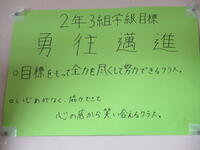 2年3組学級目標
勇往邁進
○目標をもって全力を尽くして努力できるクラス。
○いじめがなく、協力できて
心の底から笑い合えるクラス。